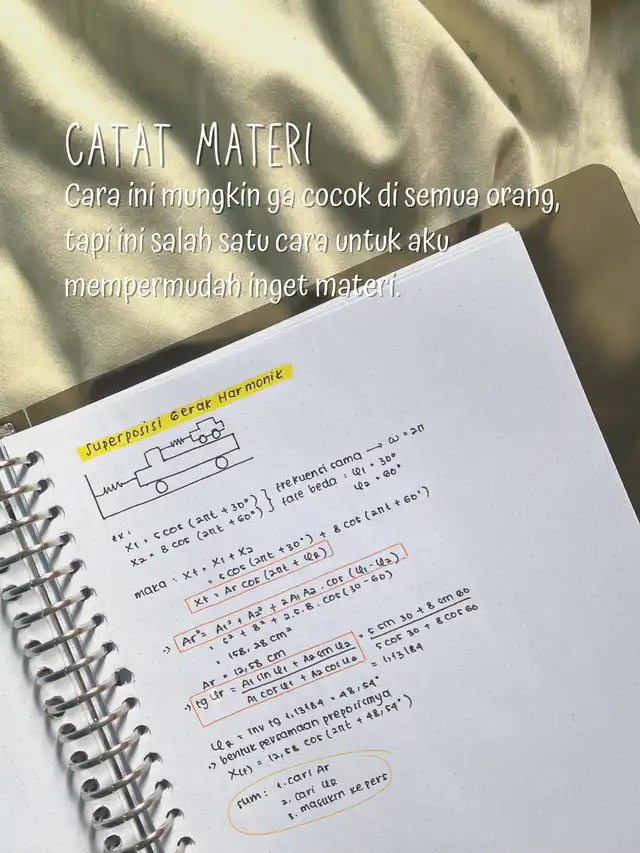 CATAT MATERI
Cara ini mungkin ga cocok di semua orang,
tapi ini salah satu cara untuk aku
mempermudah inget materi.
Superposisi Gerak Harmonik
ex:
x1 = 5 cos (2πt + 30°) } frekuensi sama → ω = 2π
x2 = 8 cos (2πt + 60°) } fase beda : φ1 = 30°
φ2 = 60°
maka : xt = x1 + x2
= 5 cos (2πt + 30°) + 8 cos (2πt + 60°)
xt = Ar cos (2πt + φR)
Ar² = A1² + A2² + 2A1 A2 . cos (φ1 - φ2)
= 5² + 8² + 2.5.8. cos (30 - 60)
= 158,28 cm²
Ar = 12,58 cm
tg φr = A1 sin φ1 + A2 sin φ2 / A1 cos φ1 + A2 cos φ2 = 5 sin 30 + 8 sin 60 / 5 cos 30 + 8 cos 60
= 1,13184
φR = inv tg 1,13184 = 48,54°
bentuk persamaan
x(t) = 12,58 cos (2πt + 48,54°)
sum: 1. cari Ar
2. cari φR
3. masukin ke pers